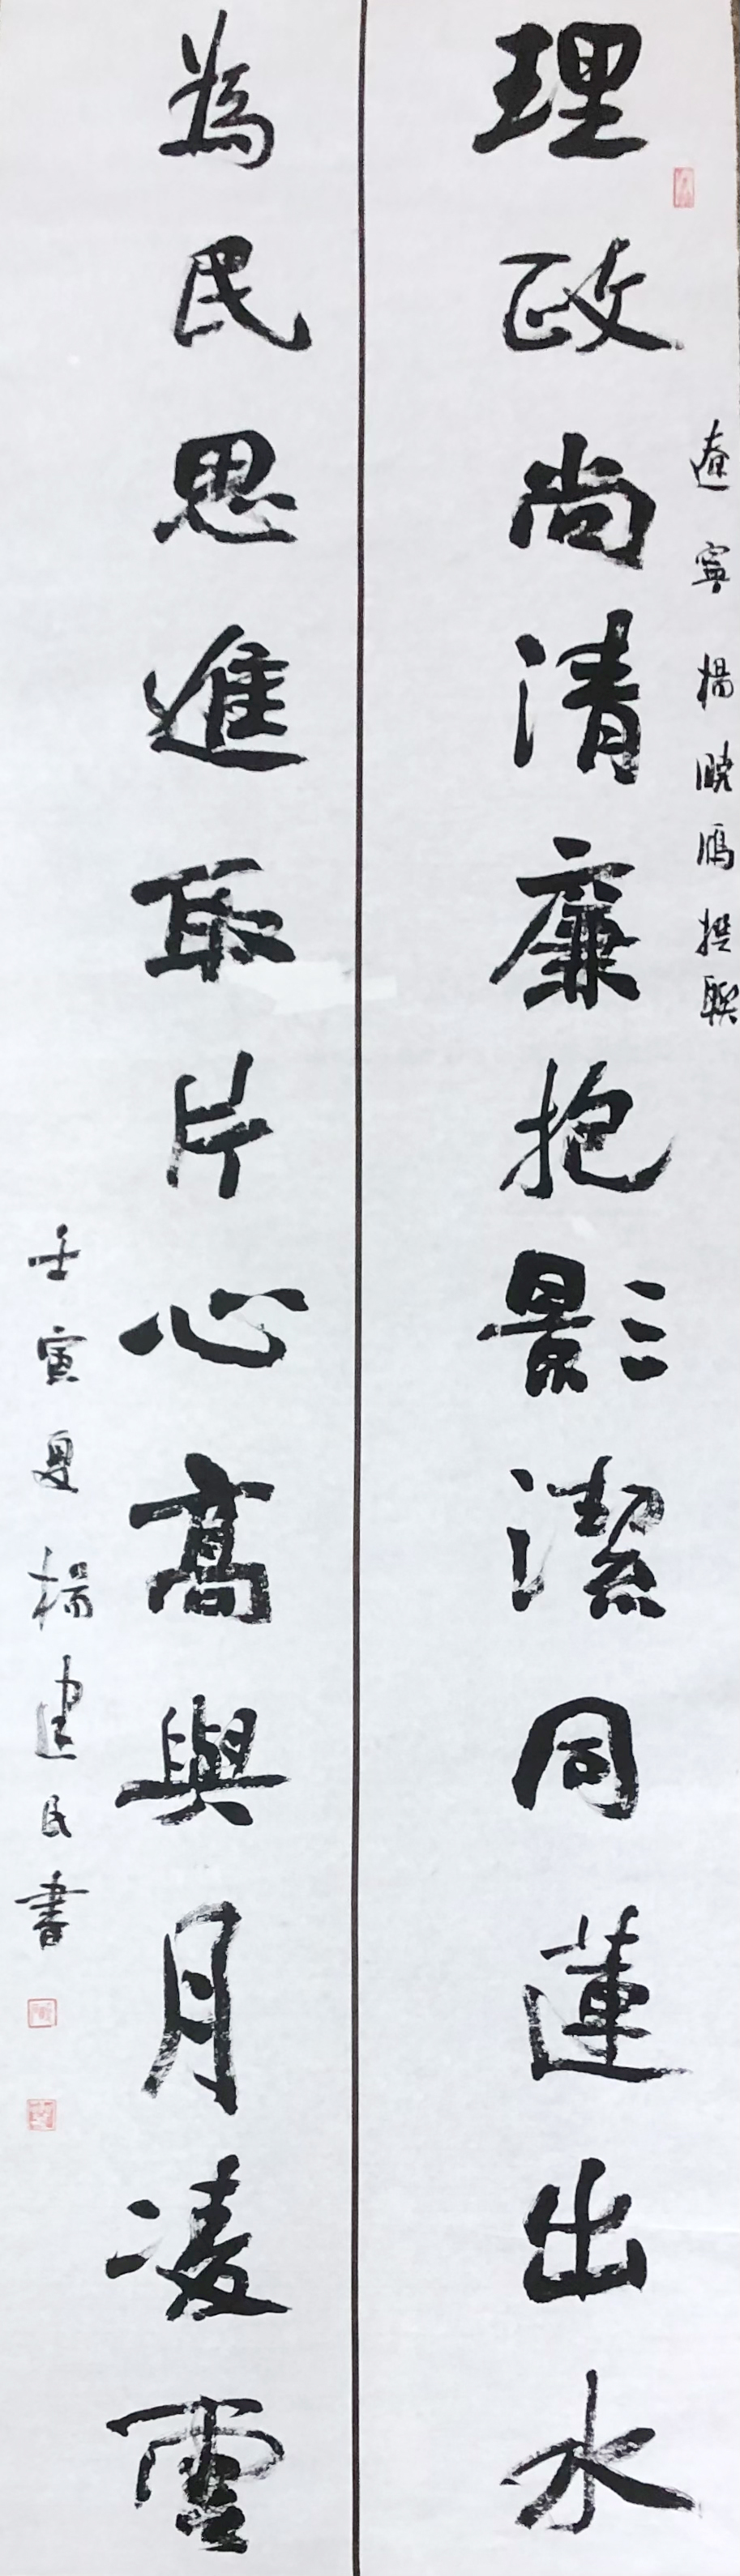 遼寧楊曉雁撰聯
理政尚清廉抱影潔同蓮出水
為民思進取片心高與月凌雲
壬寅夏楊建民書